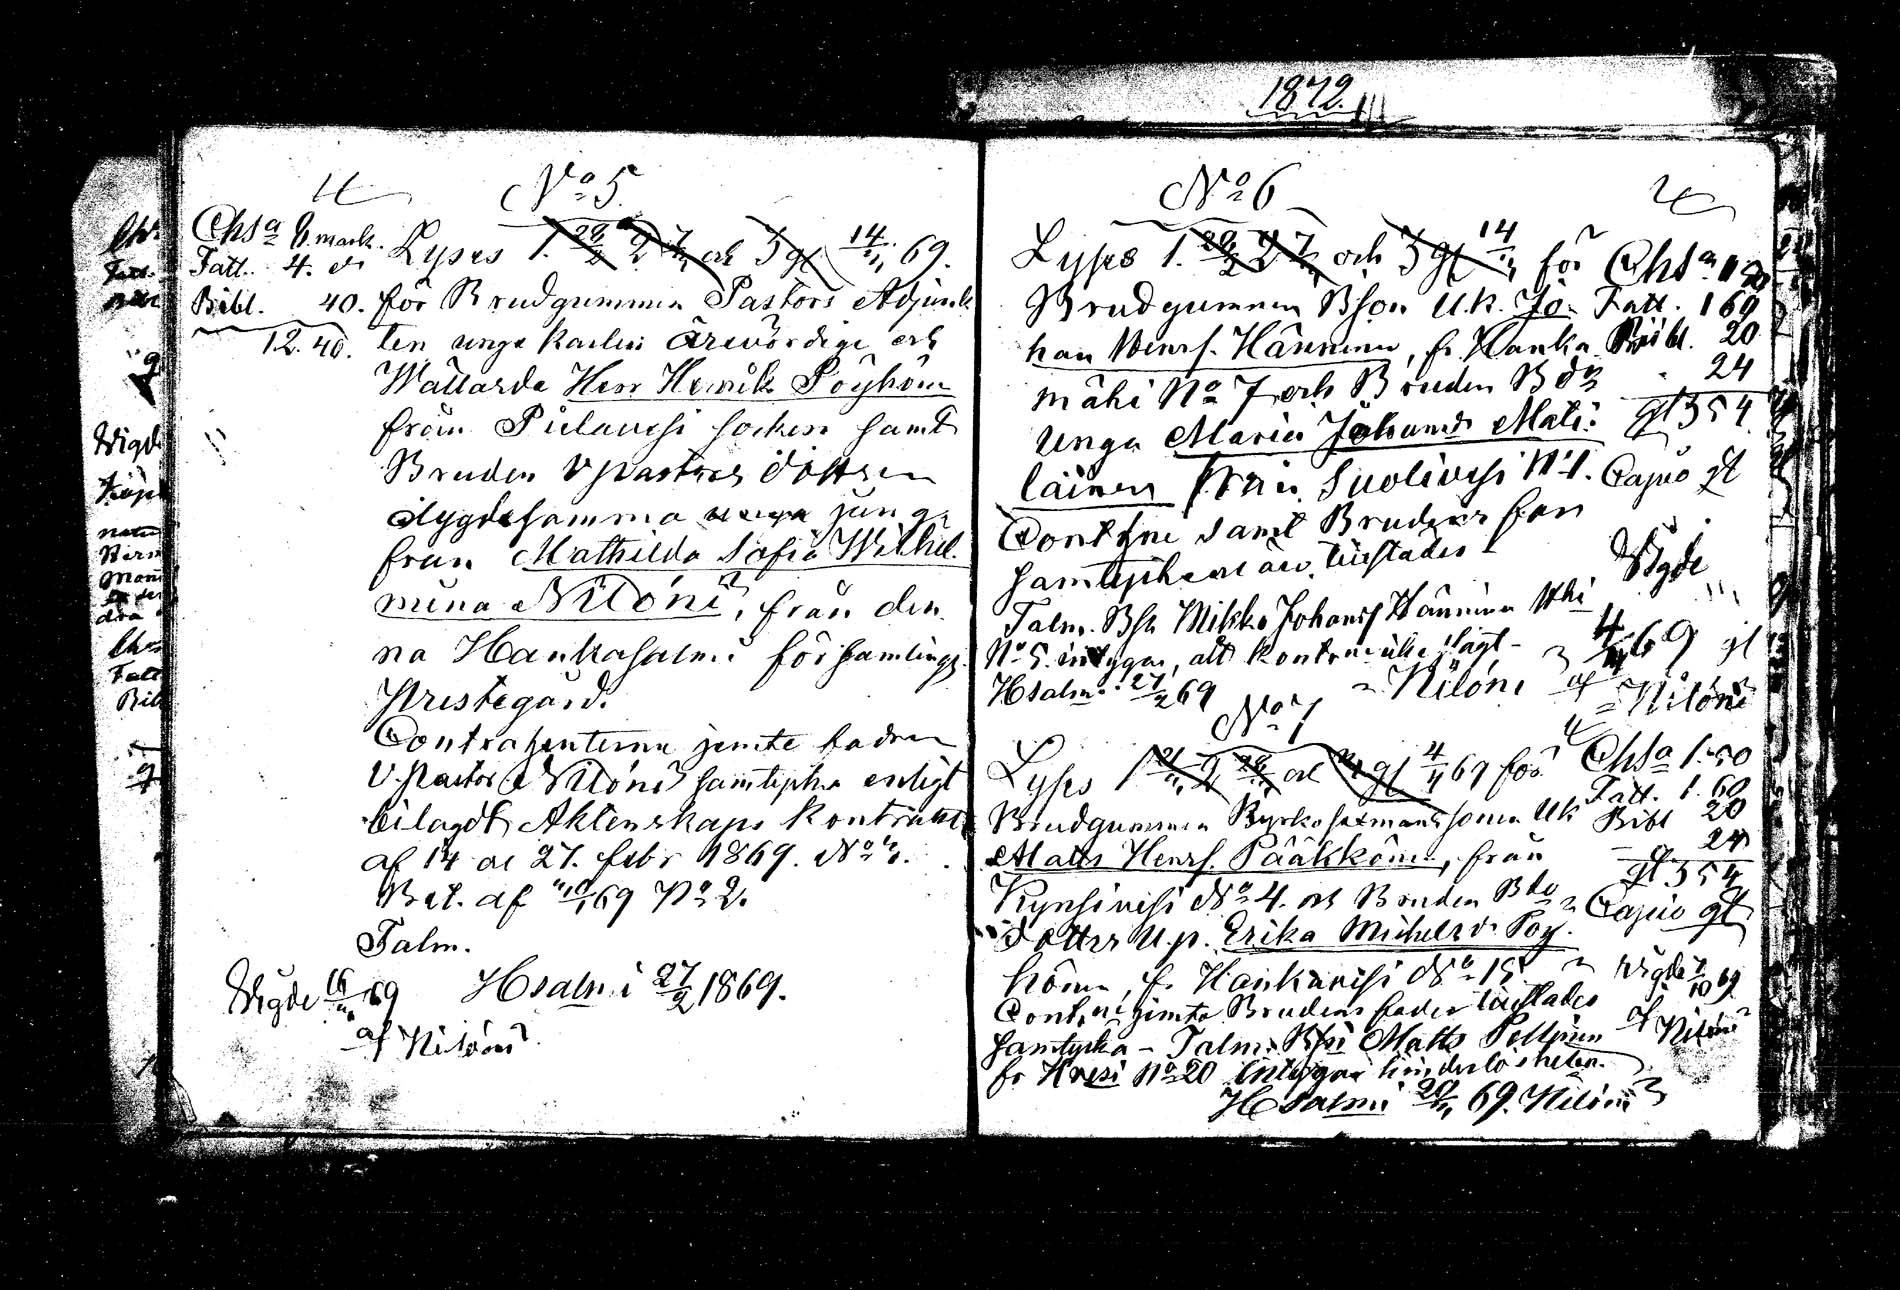 1872.
No 5.
Chsa 8 mark.
Fatt. 4. d:o
Bibl. 40.
12.40.
Lyses 1. 28/2 2 7/3 och 3 gg 14/3 69.
för Brudgummen Pastors Adjunk
ten unge Karlen ärevördige och
Wällärde Herr Henrik Pöyhöne
från Pielavesi socken samt
Bruden VPastors dottren
dygdesamma unga jung-
frun Mathilda Sofia Wilhel-
mina Nilóni, från den
na Hankasalmi församlings
Prestegård.
Contrahenterna jemte fadren
V.Pastor Nilóni samtycka enligt
bilagdt Äktenskaps Kontrakt
af 14 oc 27. febr 1869. No
Bet. af 69 No 2.
Talm.
Hsalmi 27/2 1869.
Wigde 16/3 69
af Nilóni
No 6
Lyses 1. 28/2 2 7/3 och 3 gg 14/3 för
Brudgummen Bson U.k. Jo-
han Henrs. Hänninen, fr. Hanka
mäki No 7 och Bruden Bdr
unga Maria Johansdr Mati-
läinen från Suolivesi No 1.
Contrne samt Brudens far
samtycka tillstädes
Talm. Bsn Mikko Johanss Hänninen Hki
No 5. intygar, att kontr
Hsalmi 27/2 69 Nilóni
Chsa 1.50
Fatt. 1 60
Bibl. 20
24
gl 3 54
Capuo gl
Wigde
4/4 69 gl
af Nilóni
No 7
Lyses 1 21/3 2 28/3 och 3 gg 4/4 69 för
Brudgummen Kyrkosexmanssonen Uk
Matts Henrs. Pääkköne, från
Kynsivesi No 4. och Bruden Bde
dotter U.p. Erika Michelsdr Pöy-
höne, fr. Hankavesi No 15
Contrne jemte Brudens fader tillstädes
samtycka – Talm. Matts Pellinen
fr Hvesi No 20 intygar hinderslösheten.
Hsalmi 20/3 69. Nilóni
Chsa 1.50
Fatt. 1.60
Bibl 20
24
gl 3 54
Capuo gl
Wigde 7/10 69
af Nilóni